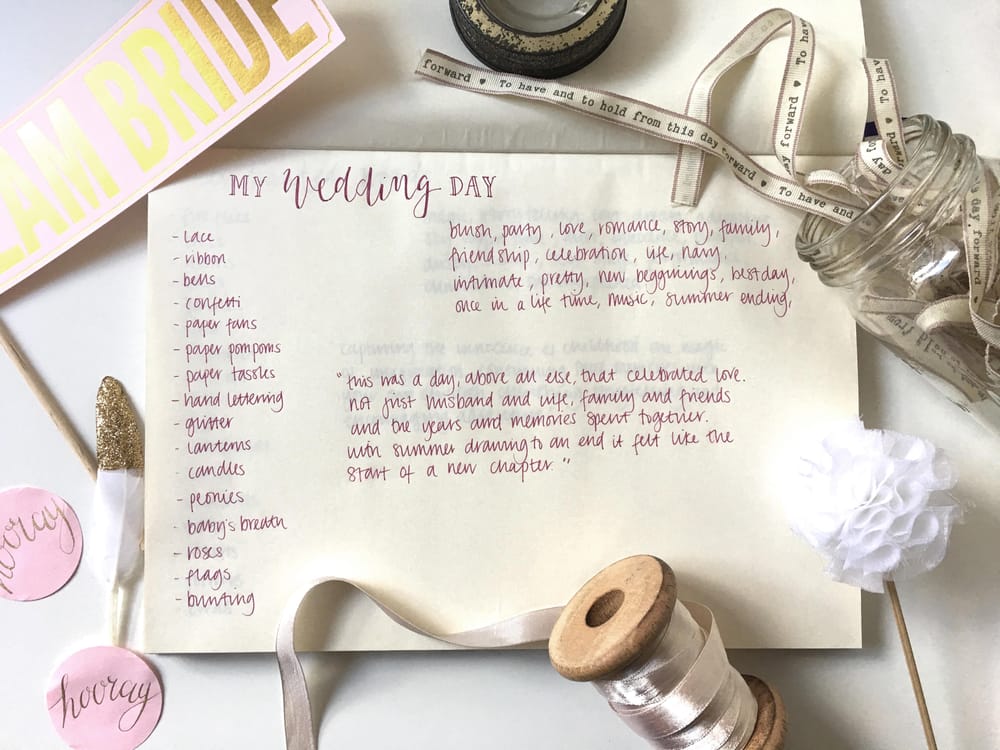 EAM BRIDE
forward ♥ To have and to hold from this day forward ♥ To have and
forward ♥ To ha
To ha
day forward
MY wedding DAY
- lace
- ribbon
- bells
- confetti
- paper fans
- paper pompoms
- paper tassles
- hand lettering
- glitter
- lanterns
- candles
- peonies
- baby's breath
- roses
- flags
- bunting
blush, party, love, romance, story, family,
friendship, celebration, life, navy,
intimate, pretty, new beggnings, best day,
once in a life time, music, summer ending,
"this was a day, above all else, that celebrated love.
not just husband and wife, family and friends
and the years and memories spent together.
with summer drawing to an end it felt like the
start of a new chapter."
hooray
hooray